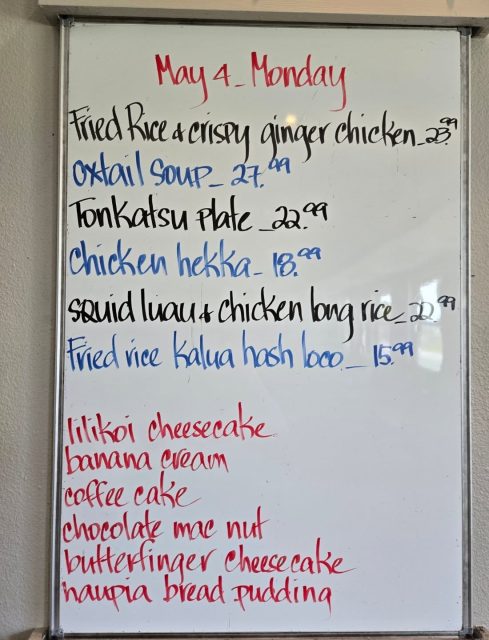 May 4 - Monday
Fried Rice & crispy ginger chicken - 23.99
Oxtail Soup - 27.99
Tonkatsu plate - 22.99
Chicken hekka - 18.99
squid luau & chicken long rice - 22.99
Fried rice kalua hash loco - 15.99
lilikoi cheesecake
banana cream
coffee cake
chocolate mac nut
butterfinger cheesecake
haupia bread pudding